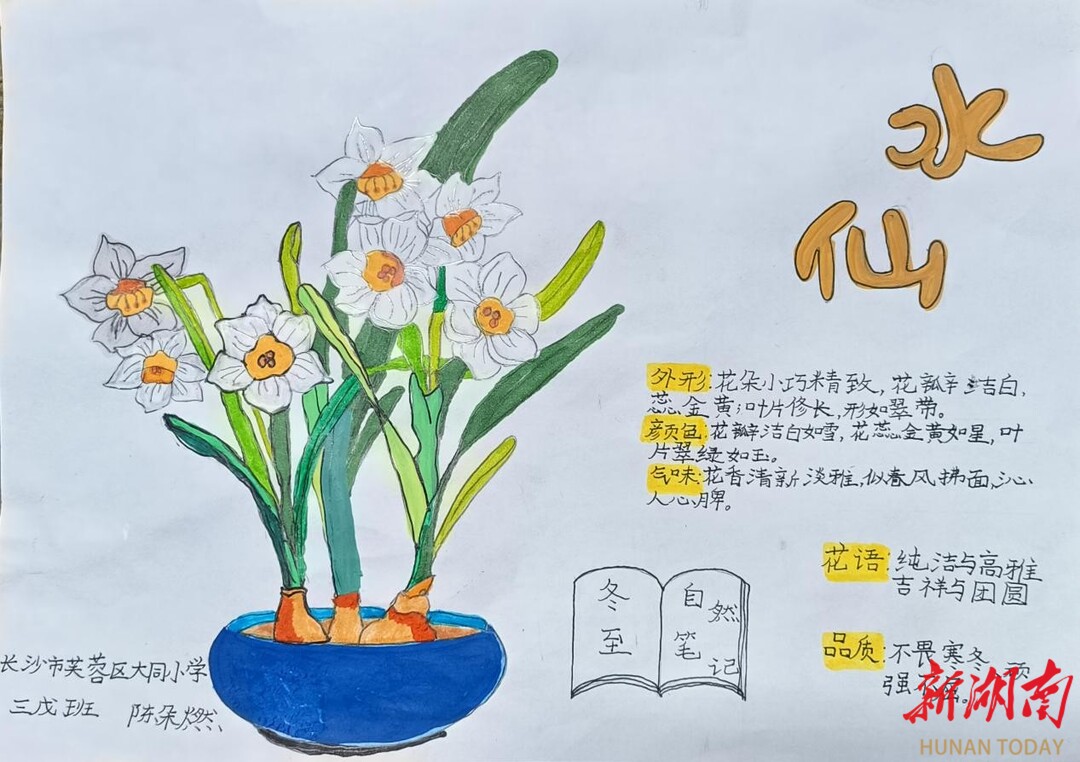 水
仙
外形:花朵小巧精致,花瓣洁白,
蕊金黄;叶片修长,形如翠带。
颜色:花瓣洁白如雪,花蕊金黄如星,叶
片翠绿如玉。
气味:花香清新淡雅,似春风拂面,沁
人心脾。
花语:纯洁与高雅
吉祥与团圆
品质:不畏寒冬
强
冬至
自然
笔记
长沙市芙蓉区大同小学
三戊班 陈朵燃
新湖南
HUNAN TODAY